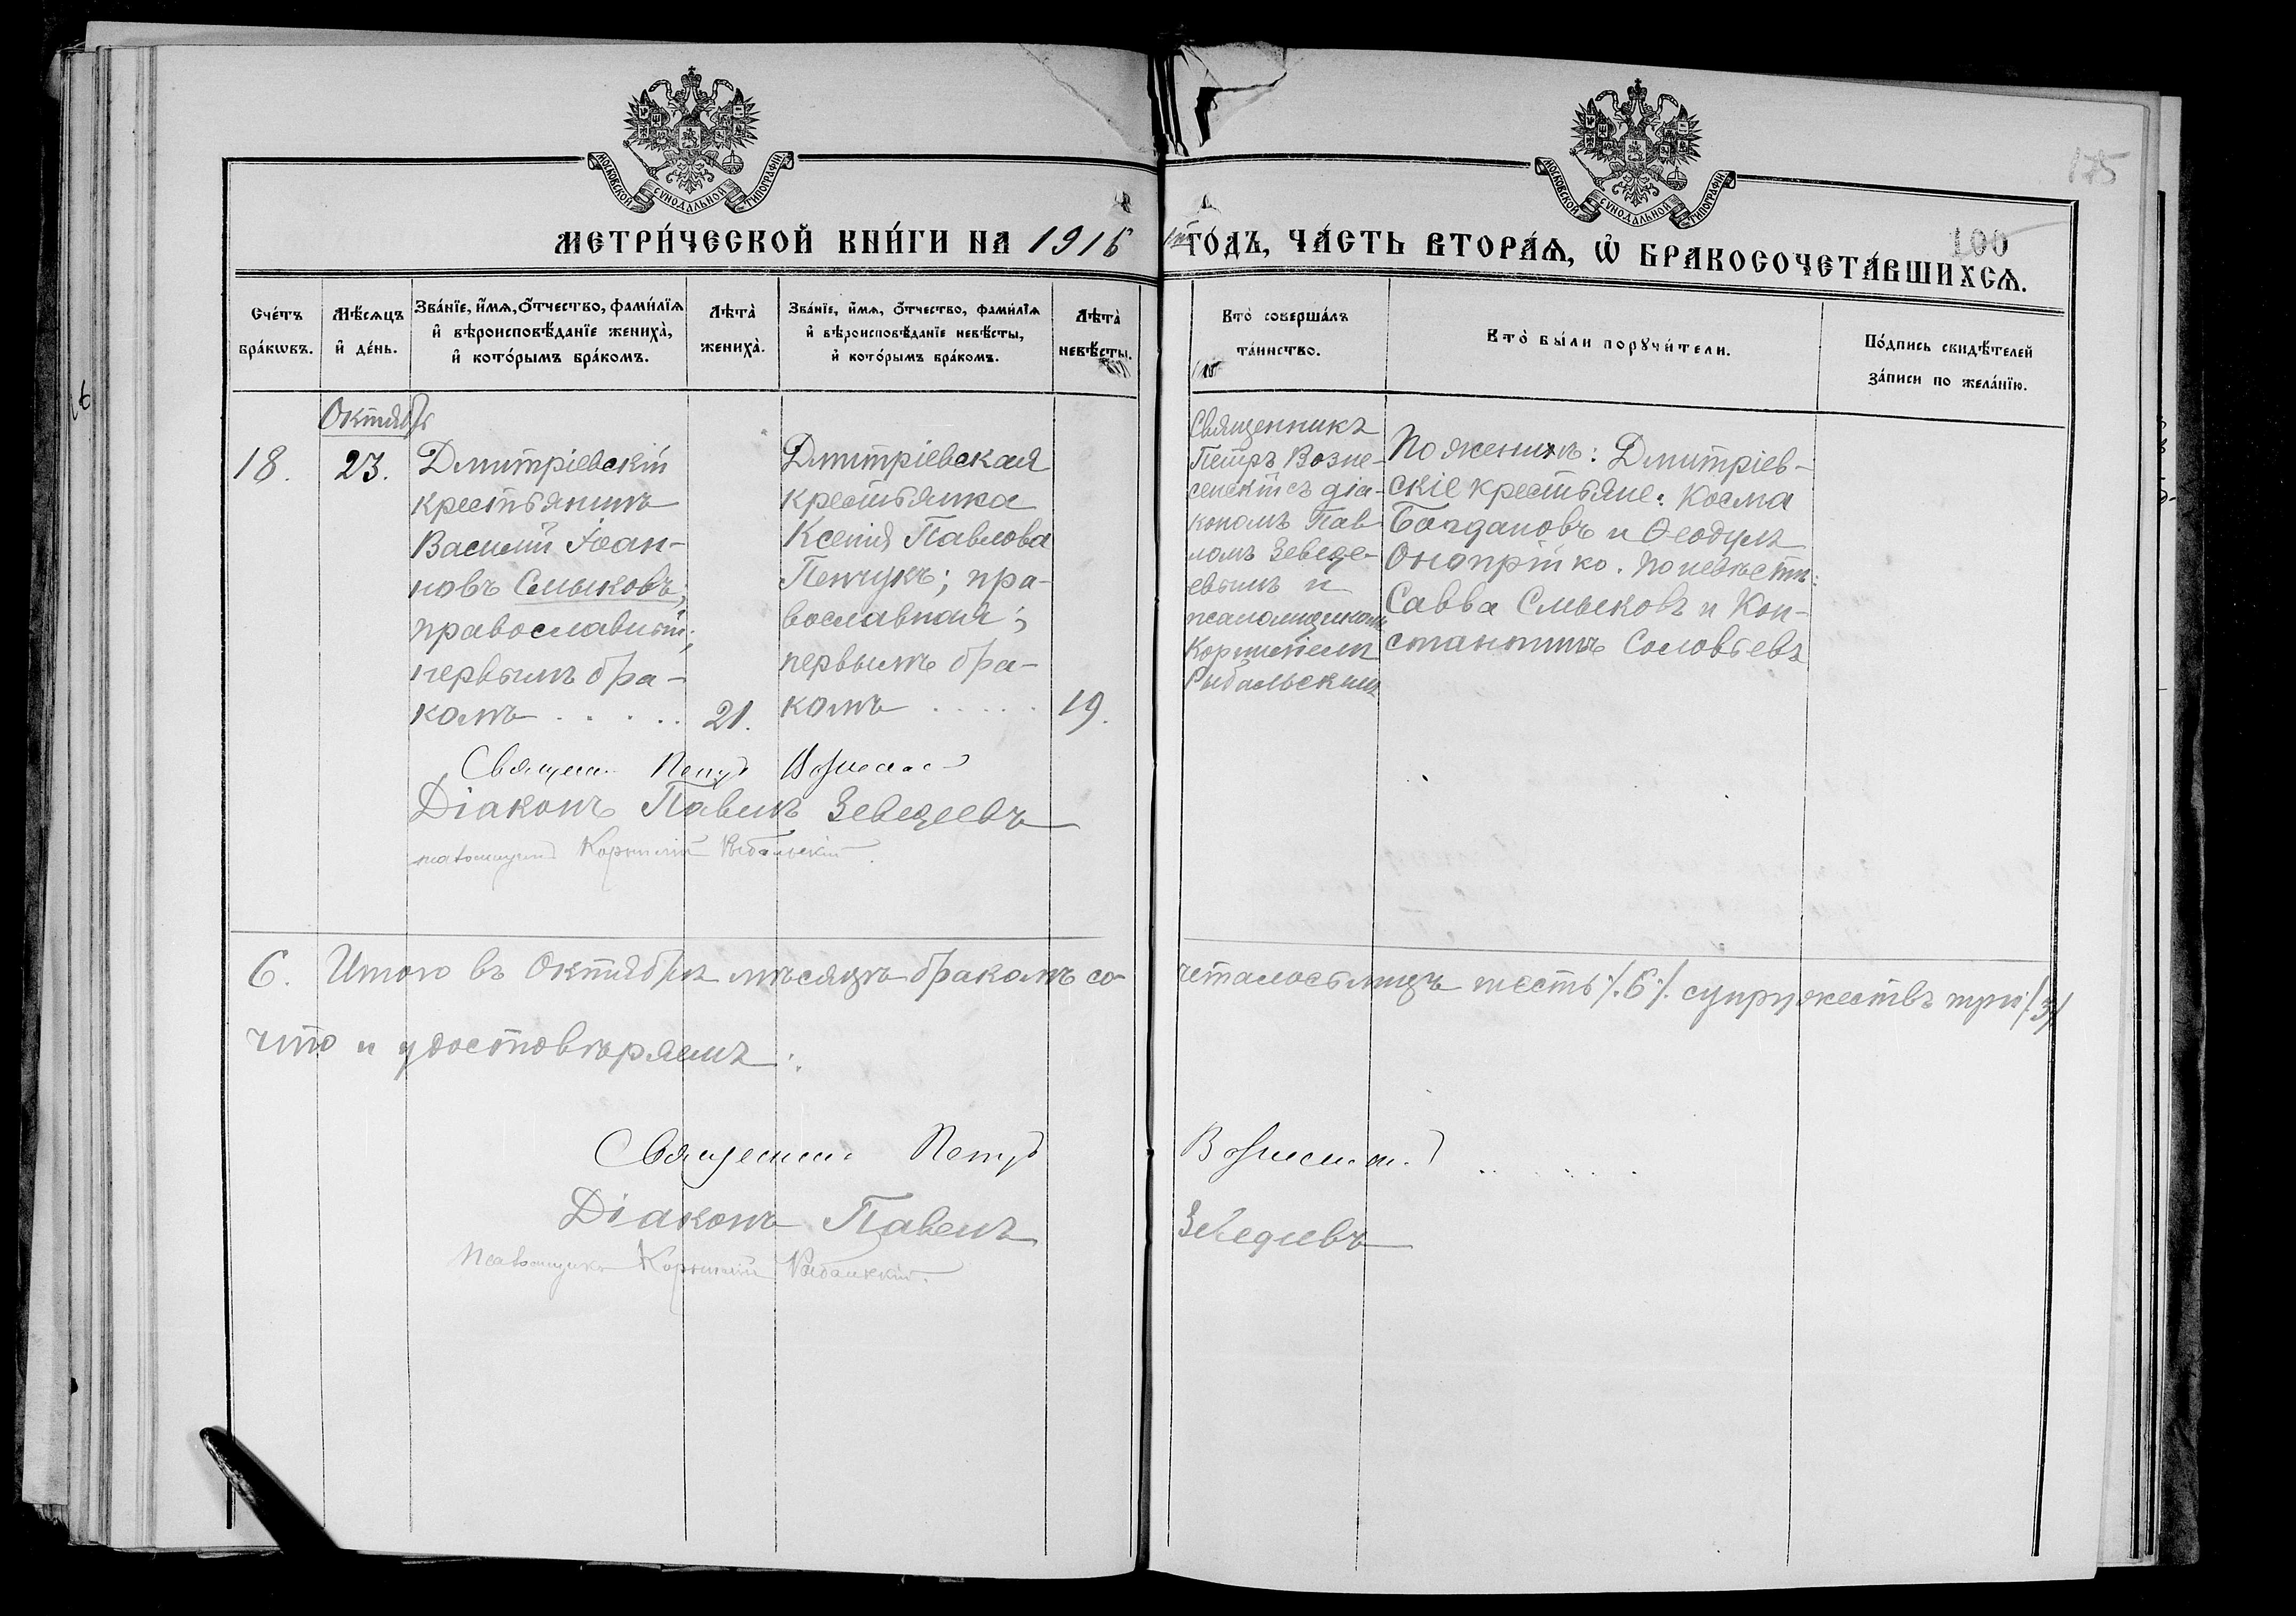 175
МОСКОВСКОЙ СѴНОДАЛЬНОЙ ТИПОГРАФІИ
МОСКОВСКОЙ СѴНОДАЛЬНОЙ ТИПОГРАФІИ
МЕТРИ́ЧЕСКОЙ КНИ́ГИ НА 1916 ГО́ДЪ, ЧА́СТЬ ВТОРА́Ѧ, Ѡ҆ БРАКОСОЧЕТА́ВШИХСѦ.
100
Сче́тъ
бра́кѡвъ.
Мѣ́сяцъ
и҆ де́нь.
Зва́нїе, и҆́мѧ, ѻ҆́тчество, фами́лїѧ
и҆ вѣроисповѣ́данїе жениха̀,
и҆ кото́рымъ бра́комъ.
Лѣта̀
жениха̀.
Зва́нїе, и҆́мѧ, ѻ҆́тчество, фами́лїѧ
и҆ вѣроисповѣ́данїе невѣ́сты,
и҆ кото́рымъ бра́комъ.
Лѣта̀
невѣ́сты.
Кто̀ соверша́лъ
та́инство.
Кто̀ бы́ли порꙋчи́тели.
По́дпись свидѣ́телей
за́писи по жела́нїю.
Октябрь
18.
23.
Дмитріевскій
крестьянинъ
Василій Іоан-
новъ Смыковъ;
православный;
первымъ бра-
комъ . . . . .
21.
Дмитріевская
крестьянка
Ксенія Павлова
Пенчукъ; пра-
вославная;
первымъ бра-
комъ . . . . .
19.
Священникъ
Петръ Возне-
сенскій съ діа-
кономъ Пав-
ломъ Зеведе-
евымъ и
псаломщикомъ
Корниліемъ
Рыбальскимъ
По женихѣ: Дмитріев-
скіе крестьяне: Косма
Богдановъ и Ѳеодулъ
Оноприйко. По невѣстѣ:
Савва Смыковъ и Кон-
стантинъ Соловьевъ
Священникъ Петръ Вознесенскій
Діаконъ Павелъ Зеведеевъ
псаломщикъ Корнилій Рыбальскій.
6. Итого въ Октябрѣ мѣсяцѣ бракомъ со-
четалось лицъ шесть /.6/. супружествъ три /.3/
что и удостовѣряемъ:
Священникъ Петръ Вознесенскій . . . . . .
Діаконъ Павелъ Зеведеевъ
Псаломщикъ Корнилій Рыбальскій.